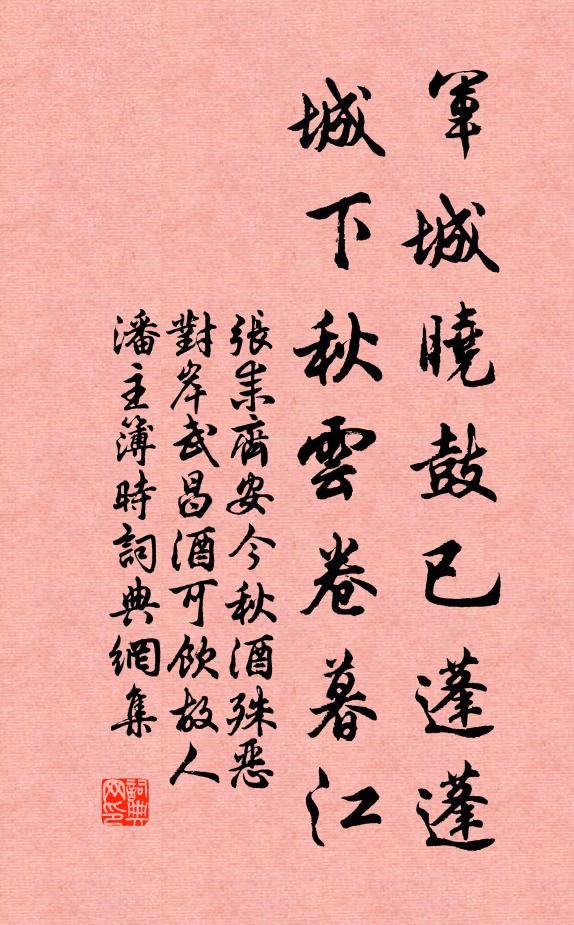 軍城曉鼓已蓬蓬
城下秋雲卷暮江
張耒齊安今秋酒殊惡
對岸武昌酒可飲故人
潘主簿時詞典網集
詞典网印